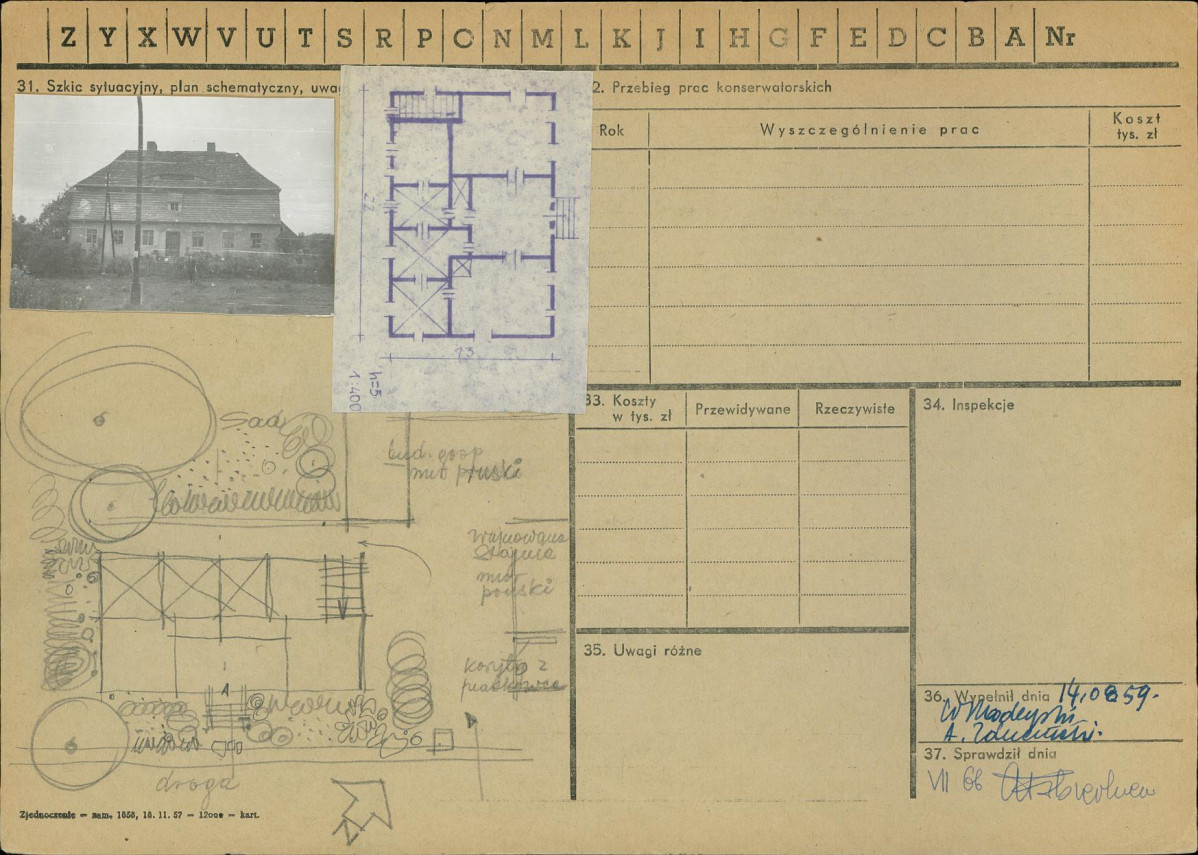 Z Y X W V U T S R P O N M L K J I H G F E D C B A Nr
31. Szkic sytuacyjny, plan schematyczny, uwa
2. Przebieg prac konserwatorskich
Rok
Wyszczególnienie prac
Koszt
tys. zł
22
13
h=5
1:400
Sad
bud. gosp
mur pruski
Stajnia
mur
pruski
koryto z
piaskowca
droga
33. Koszty
w tys. zł
Przewidywane
Rzeczywiste
34. Inspekcje
35. Uwagi różne
36. Wypełnił dnia 14.08 59.
37. Sprawdził dnia
VII 66
Zjednoczenie – zam. 1858, 18. 11. 57 – 12000 – kart.